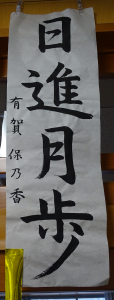 日進月歩
有賀 保乃香